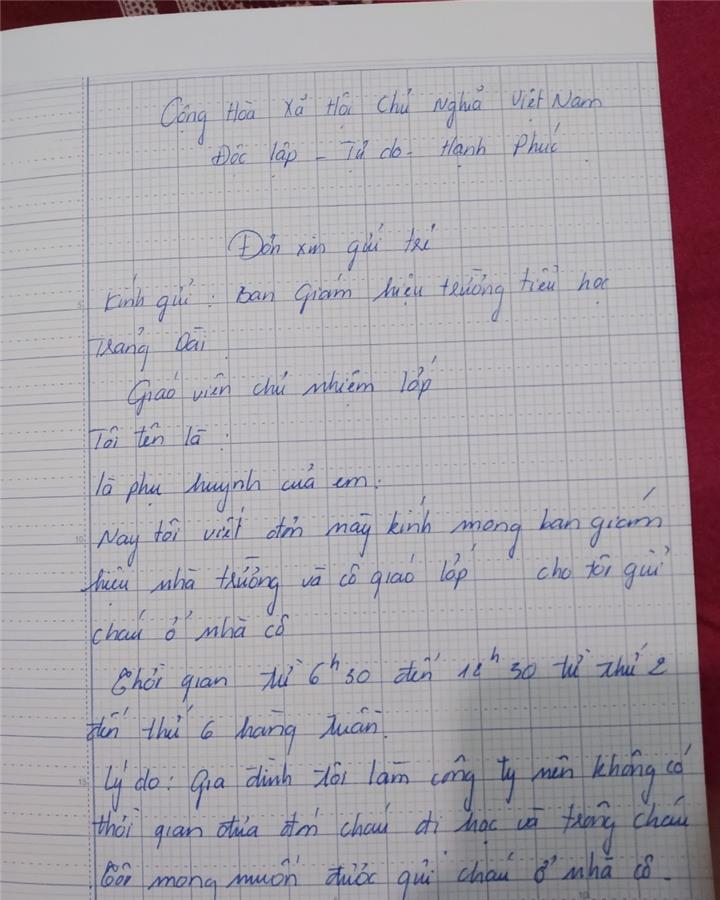 Cộng Hòa Xã Hội Chủ Nghĩa Việt Nam
Độc lập - Tự do - Hạnh Phúc
Đơn xin gửi trẻ
Kính gửi : Ban Giám hiệu trường tiểu học
Trảng Dài
Giáo viên chủ nhiệm lớp
Tôi tên là :
là phụ huynh của em :
Nay tôi viết đơn này kính mong ban giám
hiệu nhà trường và cô giáo lớp cho tôi gửi
cháu ở nhà cô
Thời gian từ 6h30 đến 18h30 từ thứ 2
đến thứ 6 hàng tuần.
Lý do : Gia đình tôi làm công ty nên không có
thời gian đưa đón cháu đi học và trông cháu
mong muốn được gửi cháu ở nhà cô.